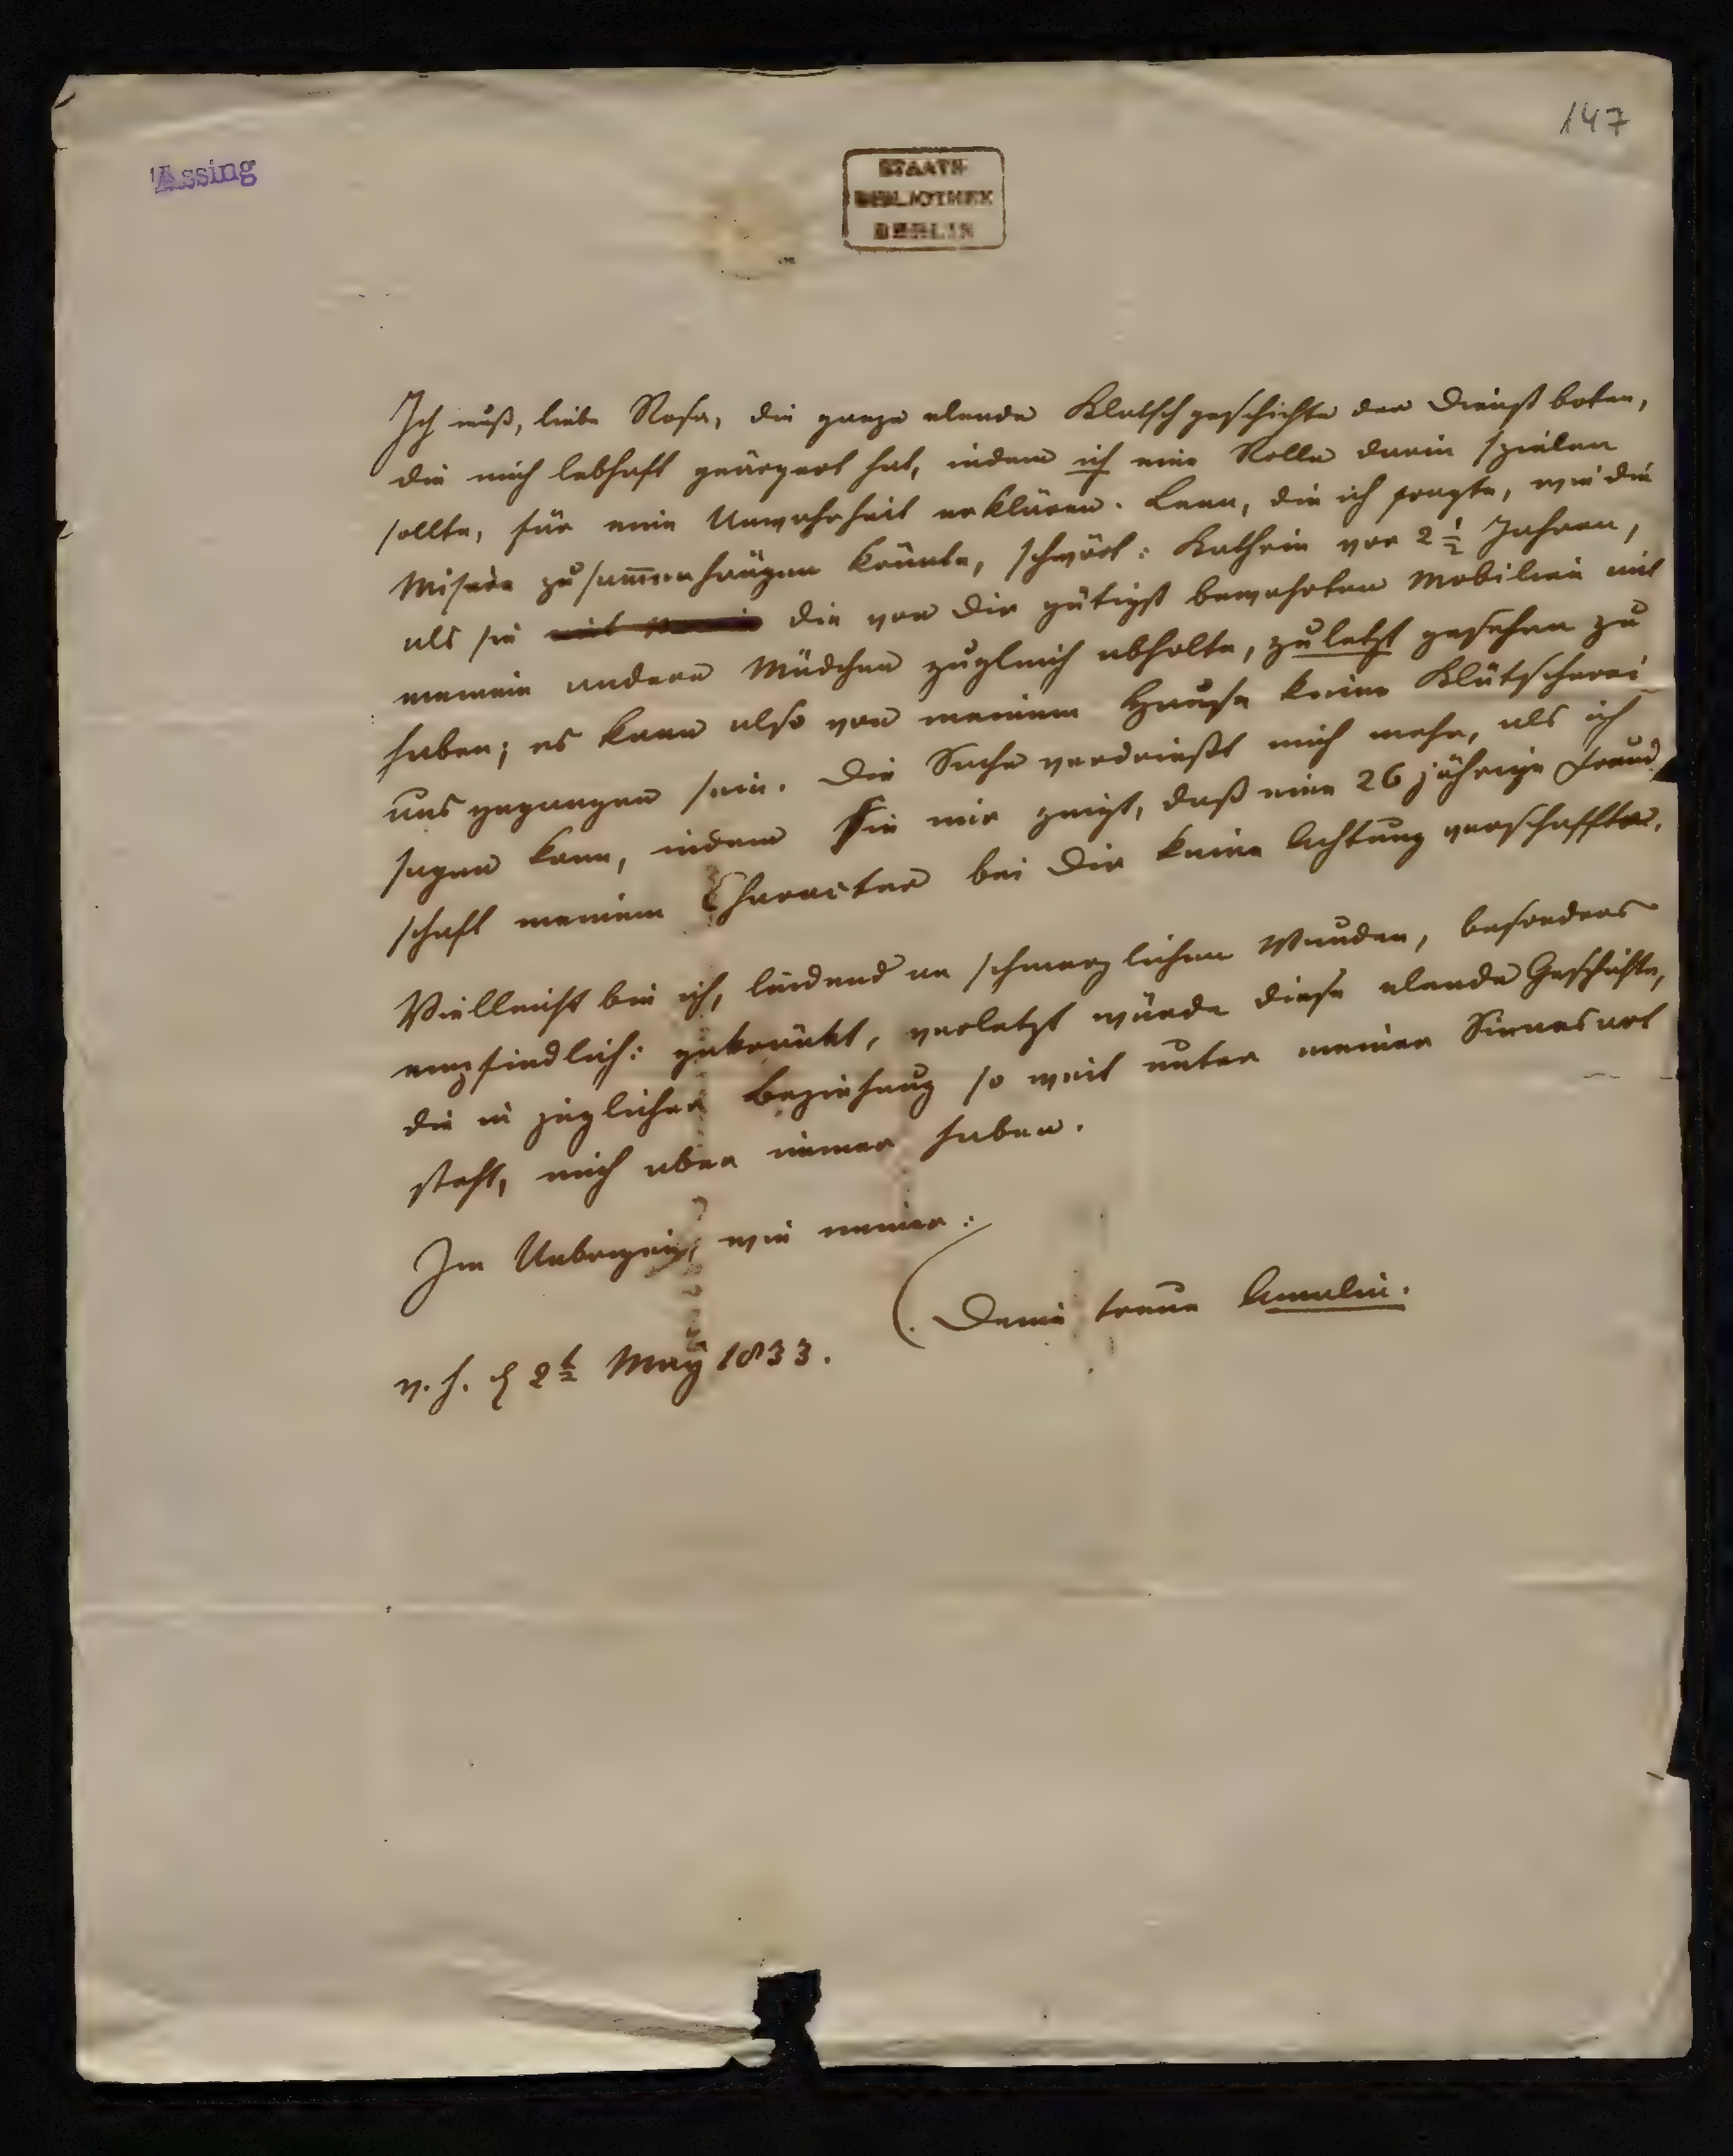 147
Assing
STAATS-
BIBLIOTHEK
BERLIN
Ich muß, liebe Rosa, die ganze elende Klatschgeschichte der Dienstboten,
die mich lebhaft geärgert hat, indem ich eine Rolle darin spielen
sollte, für eine Unwahrheit erklären. Lene, die ich fragte, wie die
Misère zusam̅enhängen könnte, schwört: Kathrin vor 2 ½ Jahren,
als sie mit die von Dir gütigst bewahrten Mobilien mit
meinem andern Mädchen zugleich abholte, zuletzt gesehen zu
haben; es kann also von meinem Hause keine Klätscherei
ausgegangen sein. Die Sache verdrießt mich mehr, als ich
sagen kann, indem sie mir zeigt, daß eine 26 jährige Freund
schaft meinem Character bei Dir keine Achtung verschaffte.
Vielleicht bin ich, leidend an schmerzlichen Wunden, besonders
empfindlich: gekränkt, verletzt würde diese elende Geschichte,
die in jeglicher Beziehung so weit unter meiner Sinnesart
steht, mich aber immer haben.
Im Uebrigen, wie immer:
Deine treue Amalie.
v. H. d 2t May 1833.